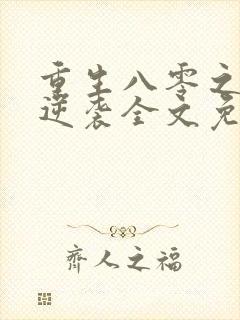 重生八零之
逆袭全文免
齊人之福